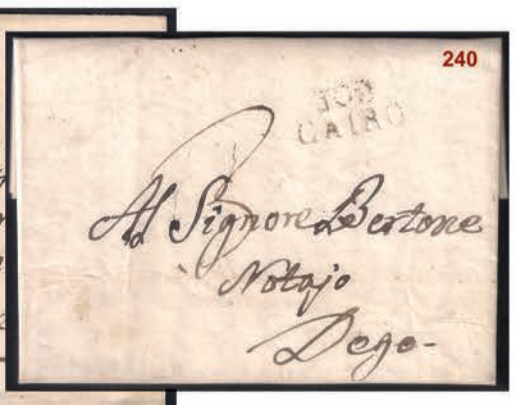 240
CAIRO
Al Signore Bertone
Notajo
Dego-